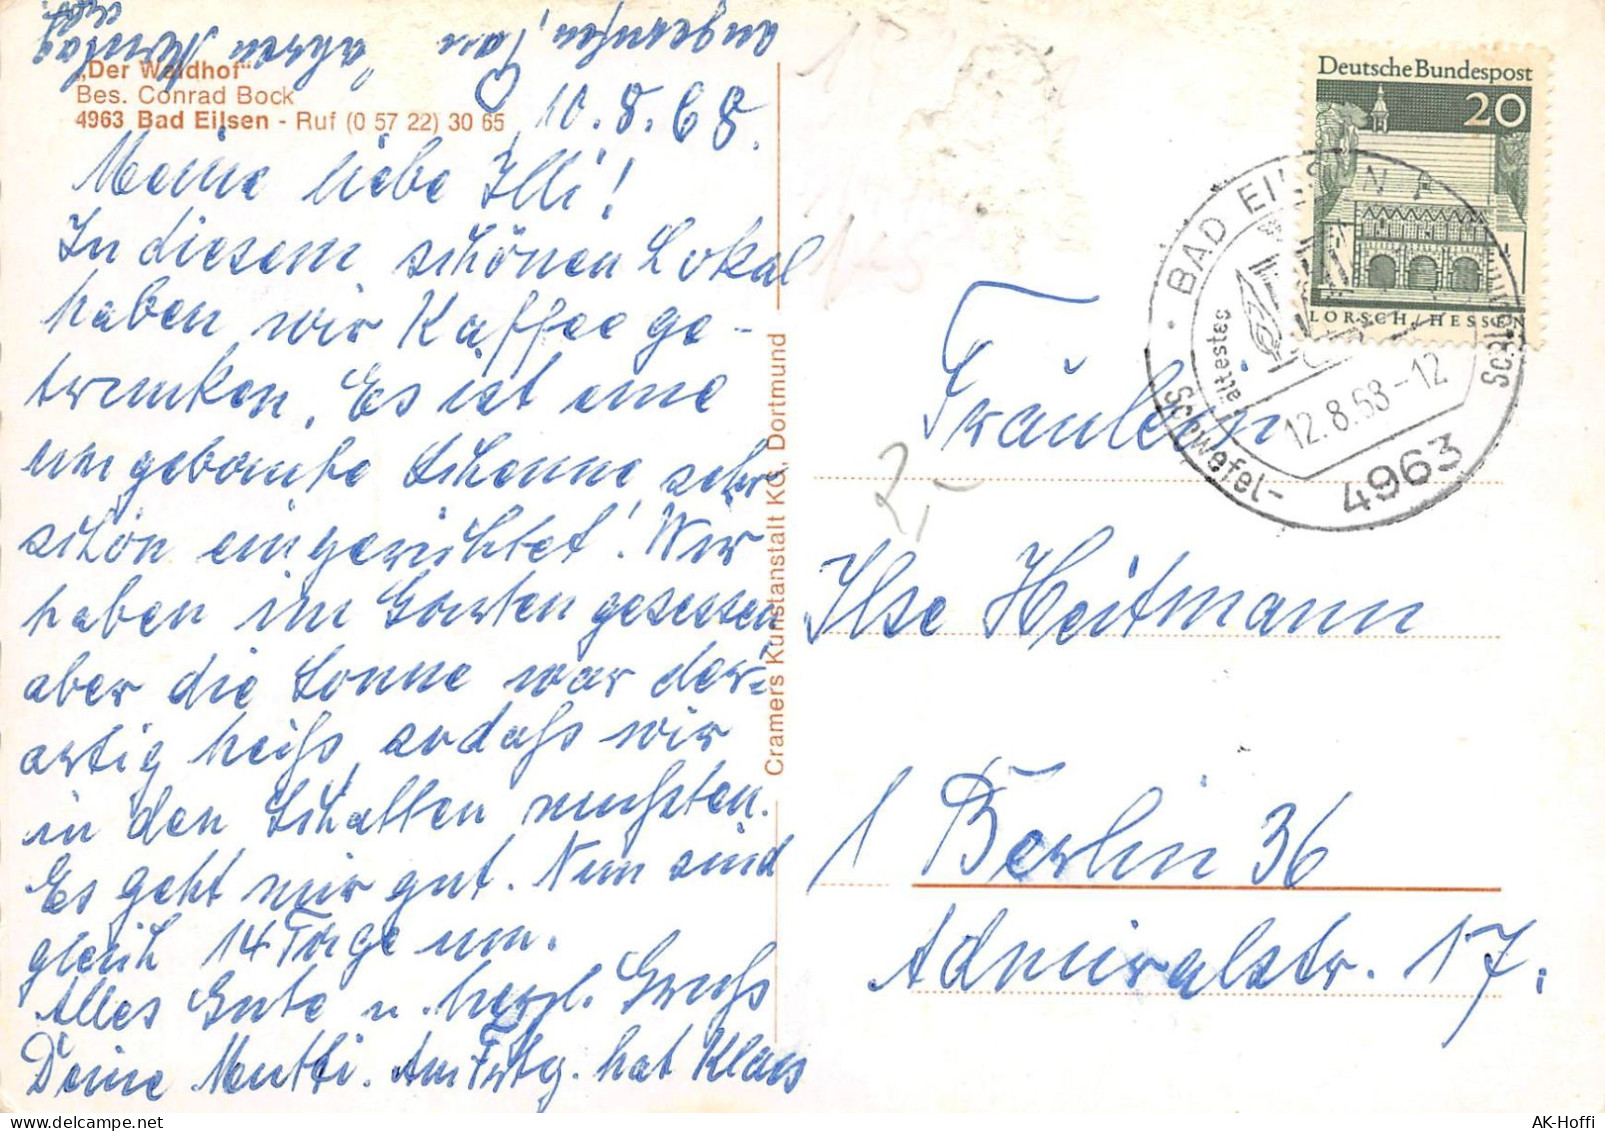 „Der Waldhof"
Bes. Conrad Bock
4963 Bad Eilsen - Ruf (0 57 22) 30 65
10.8.68.
Meine liebe Illi!
In diesem schönen Lokal
haben wir Kaffee ge-
trunken. Es ist eine
umgebaute Scheune, sehr
schön eingerichtet! Wir
haben im Garten gesessen
aber die Sonne war der-
artig heiß, sodaß wir
in den Schatten mußten.
Es geht mir gut. Nun sind
gleich 14 Tage um.
Alles Gute u. herzl. Gruß
Deine Mutti. Am Frtg. hat Klaus
angerufen,
Montag
Cramers Kunstanstalt KG, Dortmund
Deutsche Bundespost
20
LORSCH/HESSEN
BAD EILSEN
ältestes
Schwefel-
12.8.68-12
4963
2,-
Fräulein
Ilse Heitmann
1 Berlin 36
Admiralstr. 17.
AK-Hoffi